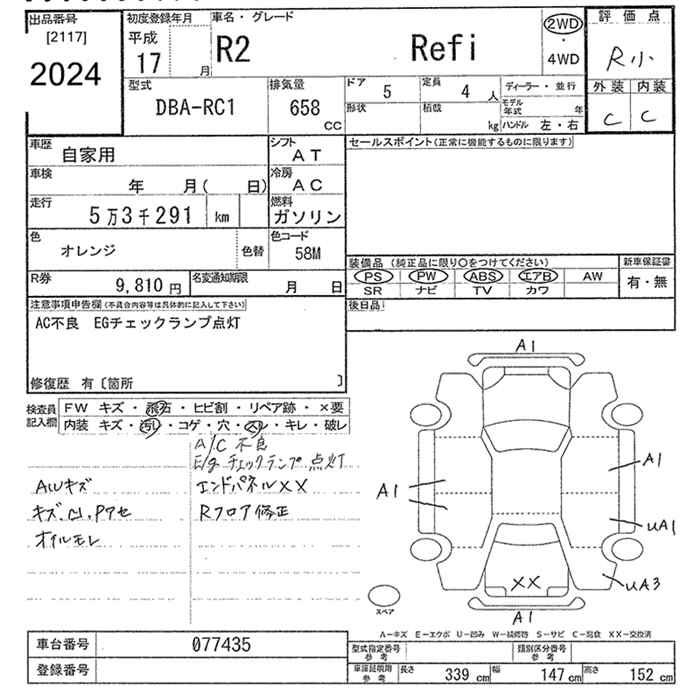 出品番号
[2117]
2024
初度登録年月
平成
17 月
車名・グレード
R2 Refi
2WD
・
4WD
評価点
R小
外装 内装
C C
型式
DBA-RC1
排気量
658
CC
ドア 5
定員 4 人
ディーラー・並行
形状
積載 kg
モデル年式 年
ハンドル 左・右
車歴 自家用
シフト AT
車検 年 月( 日)
冷房 AC
走行 5万3千291 km
燃料 ガソリン
色 オレンジ
色替
色コード 58M
R券 9,810円
名変通知期限 月 日
セールスポイント(正常に機能するものに限ります)
装備品(純正品に限り○をつけてください)
新車保証書
PS PW ABS エアB AW
有・無
SR ナビ TV カワ
後日品
注意事項申告欄(不具合内容等は具体的に記入して下さい)
AC不良 EGチェックランプ点灯
修復歴 有〔箇所 〕
検査員記入欄
FW キズ・飛石・ヒビ割・リペア跡・×要
内装 キズ・汚レ・コゲ・穴・スレ・キレ・破レ
A/C 不良
E/g チェックランプ点灯
AWキズ
エンドパネルXX
Rフロア修正
オイルモレ
A1
A1
A1
UA1
UA3
XX
A1
スペア
A-キズ E-エクボ U-凹み W-補修跡 S-サビ C-腐食 XX-交換済
車台番号 077435
登録番号
型式指定番号 参考
類別区分番号 参考
車庫証明用 参考
長さ 339 cm
幅 147 cm
高さ 152 cm